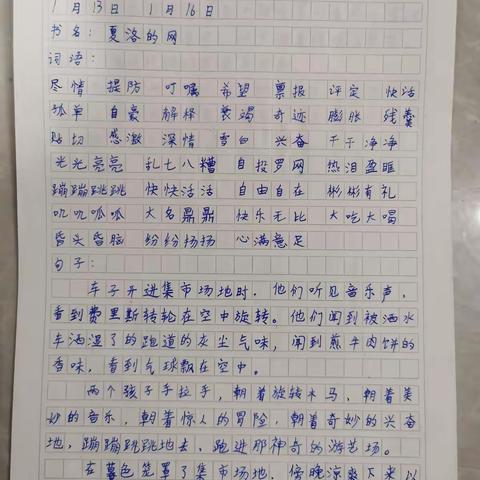 1月13日 1月16日
书名：夏洛的网
词语：
尽情 提防 叮嘱 希望 票报 评定 快活
孤单 自豪 解释 衰竭 奇迹 膨胀 残羹
贴切 感激 深情 雪白 兴奋 干干净净
光光亮亮 乱七八糟 自投罗网 热泪盈眶
蹦蹦跳跳 快快活活 自由自在 彬彬有礼
叽叽呱呱 大名鼎鼎 快乐无比 大吃大喝
昏头昏脑 纷纷扬扬 心满意足
句子：
车子开进集市场地时，他们听见音乐声，
看到费里斯转轮在空中旋转。他们闻到被洒水
车洒湿了的跑道的灰尘气味，闻到煎牛肉饼的
香味，看到气球飘在空中。
两个孩子手拉手，朝着旋转木马，朝着美
妙的音乐，朝着惊人的冒险，朝着奇妙的兴奋
地，蹦蹦跳跳地去，跑进那神奇的游艺场。
在暮色笼罩了集市场地，傍晚凉爽下来以